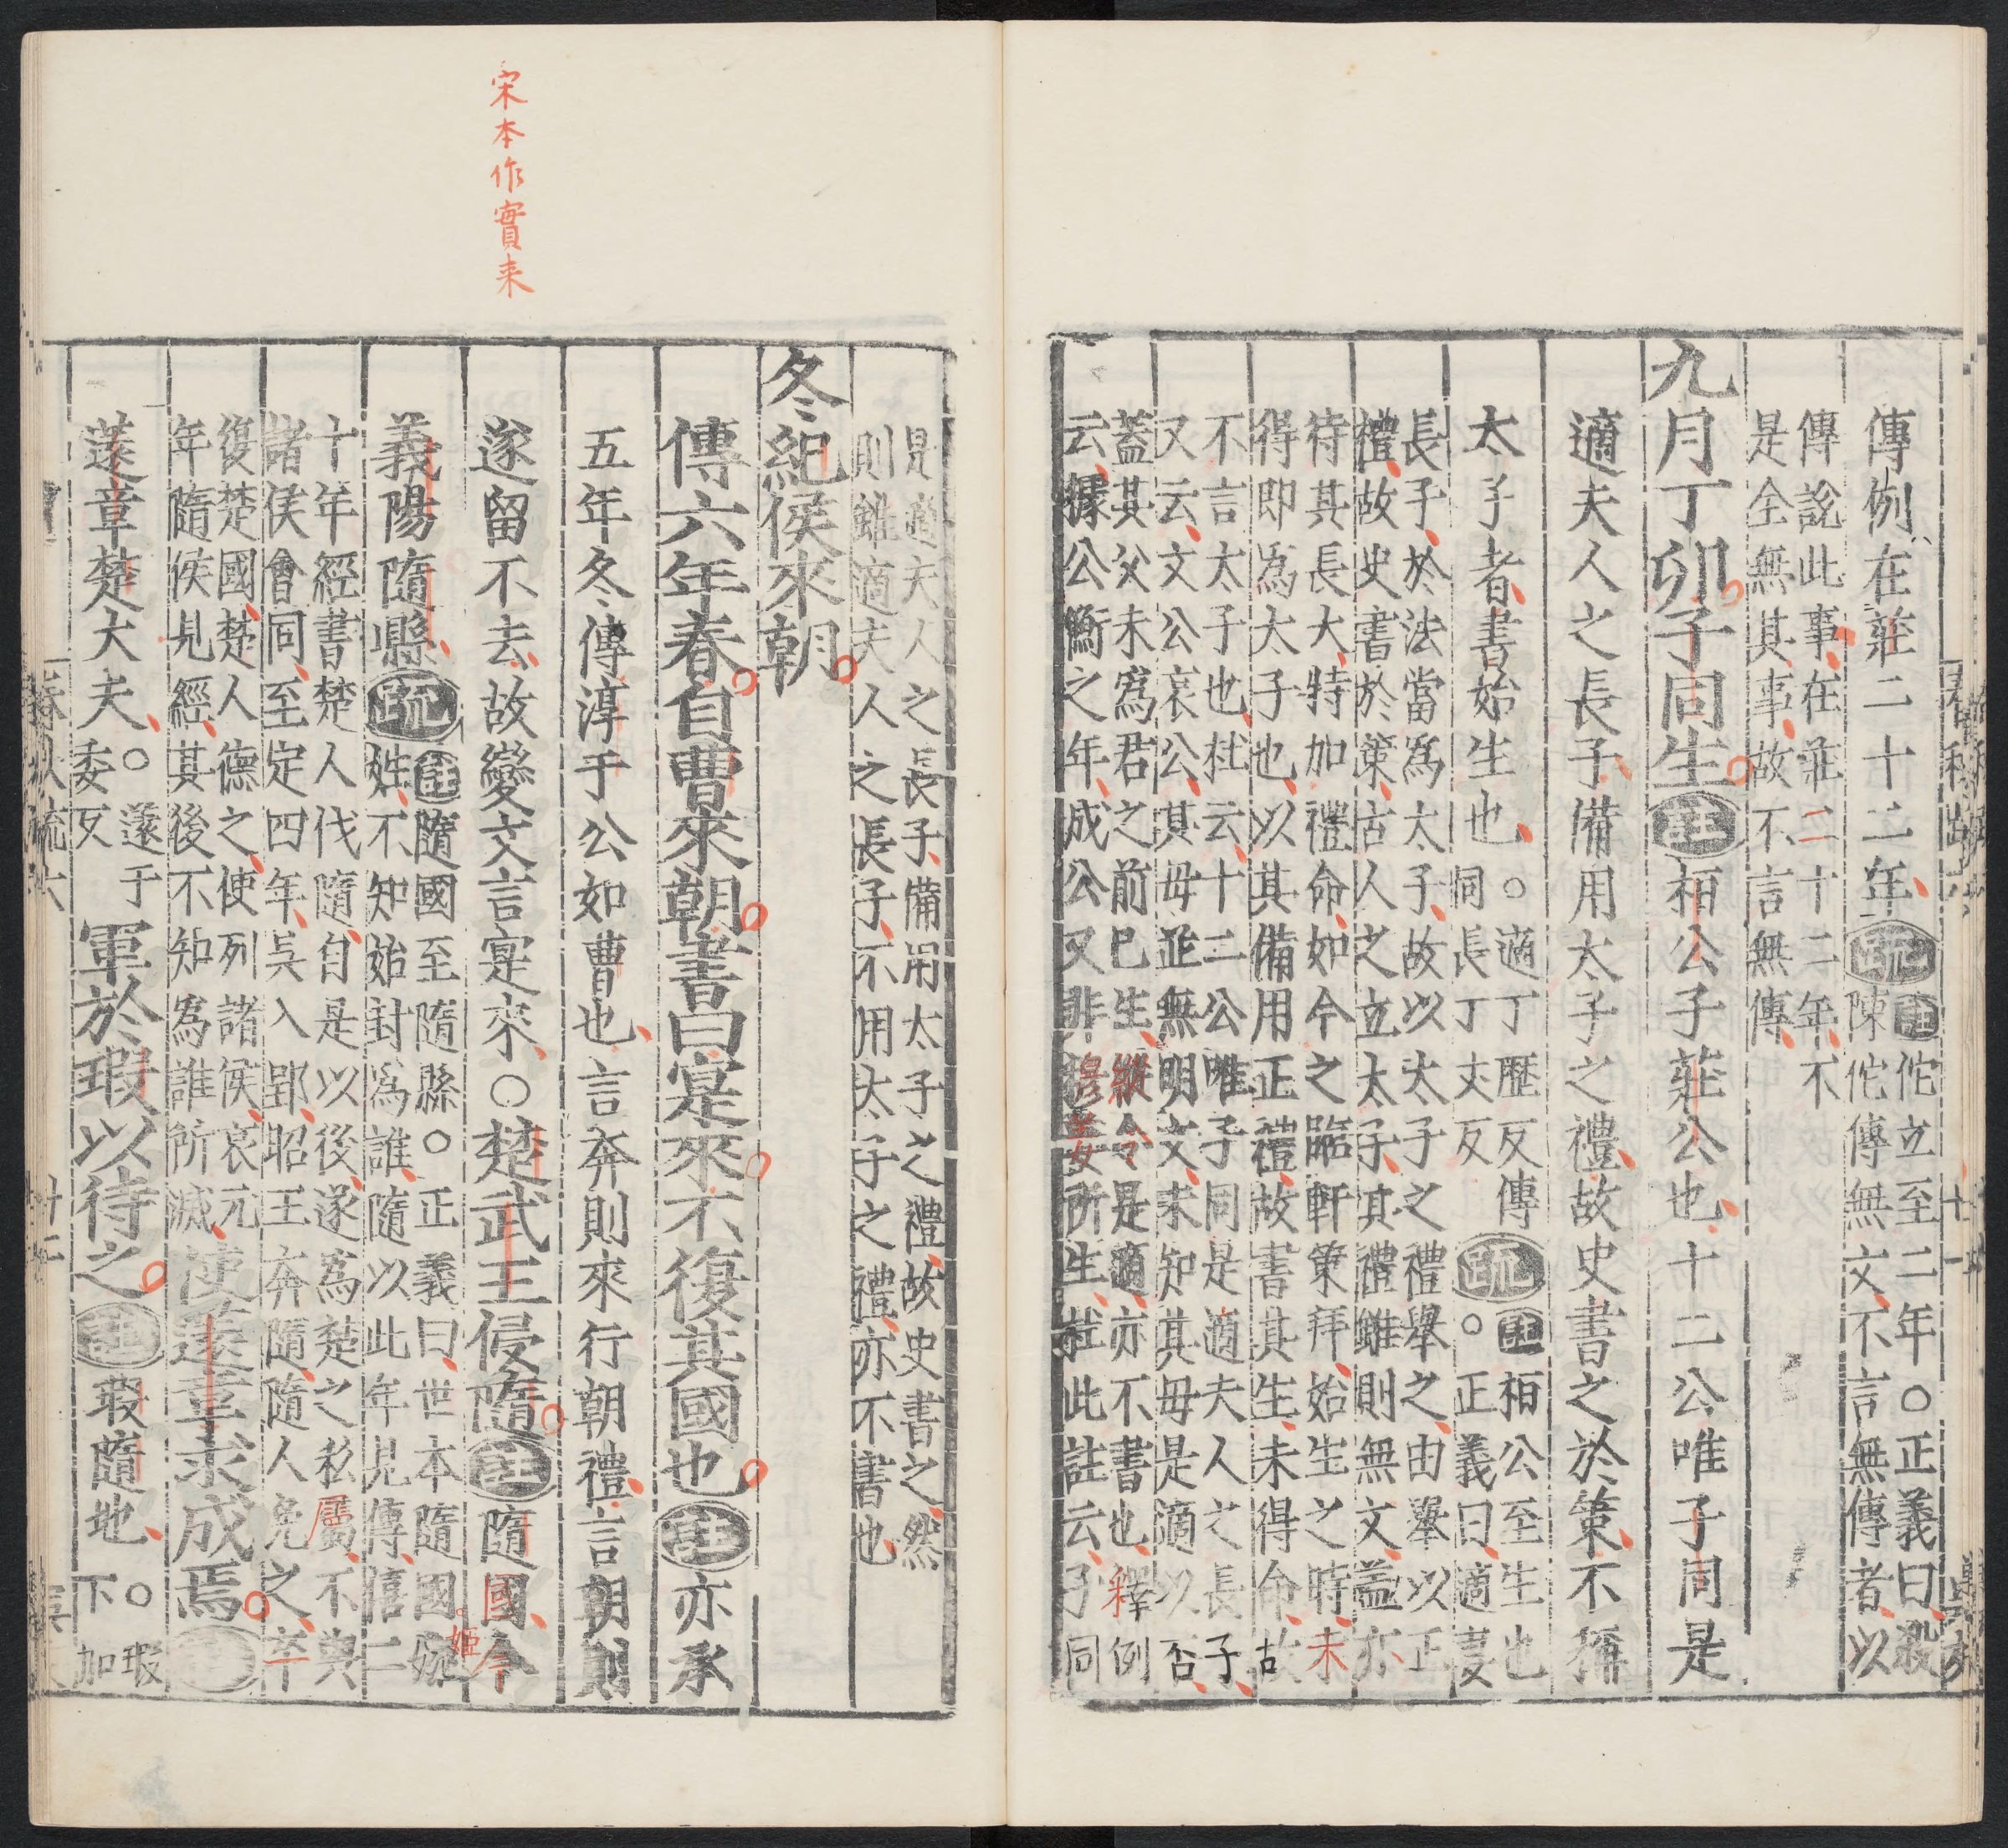 傳例在莊二十二年疏註佗立至二年○正義曰殺
陳佗傳無文不言無傳者以
傳說此事在莊二十二年不
是全無其事故不言無傳
九月丁卯子同生註桓公子莊公也十二公唯子同是
適夫人之長子備用太子之禮故史書之於策不稱
太子者書始生也○適丁歷反傳
同長丁丈反疏註桓公至生也
○正義曰適妻
長子於法當爲太子故以太子之禮舉之由舉以正
禮故史書於策古人之立太子其禮雖則無文蓋亦
待其長大特加禮命如今之臨軒策拜始生之時未
得即爲太子也以其備用正禮故書其生未得命故
不言太子也杜云十二公唯子同是適夫人之長子
又云文公哀公其母並無明文未知其母是適以否
蓋其父未爲君之前已生縱令是適亦不書也釋例
云據公衡之年成公又非穆姜所生杜此註云子同
是適夫人之長子備用太子之禮故史書之然
則雖適夫人之長子不用太子之禮亦不書也
冬紀侯來朝
傳六年春自曹來朝書曰寔來不復其國也註亦承
五年冬傳淳于公如曹也言奔則來行朝禮言朝則
遂留不去故變文言寔來○楚武王侵隨註隨國今
義陽隨縣疏註隨國至隨縣○正義曰世本隨國姬
姓不知始封爲誰隨以此年見傳僖二
十年經書楚人伐隨自是以後遂爲楚之私屬不與
諸侯會同至定四年吳入郢昭王奔隨隨人免之卒
復楚國楚人德之使列諸侯哀元
年隨侯見經其後不知爲誰所滅使薳章求成焉註
薳章楚大夫○薳于
委反軍於瑕以待之註瑕隨地○瑕
下加
宋本作實来